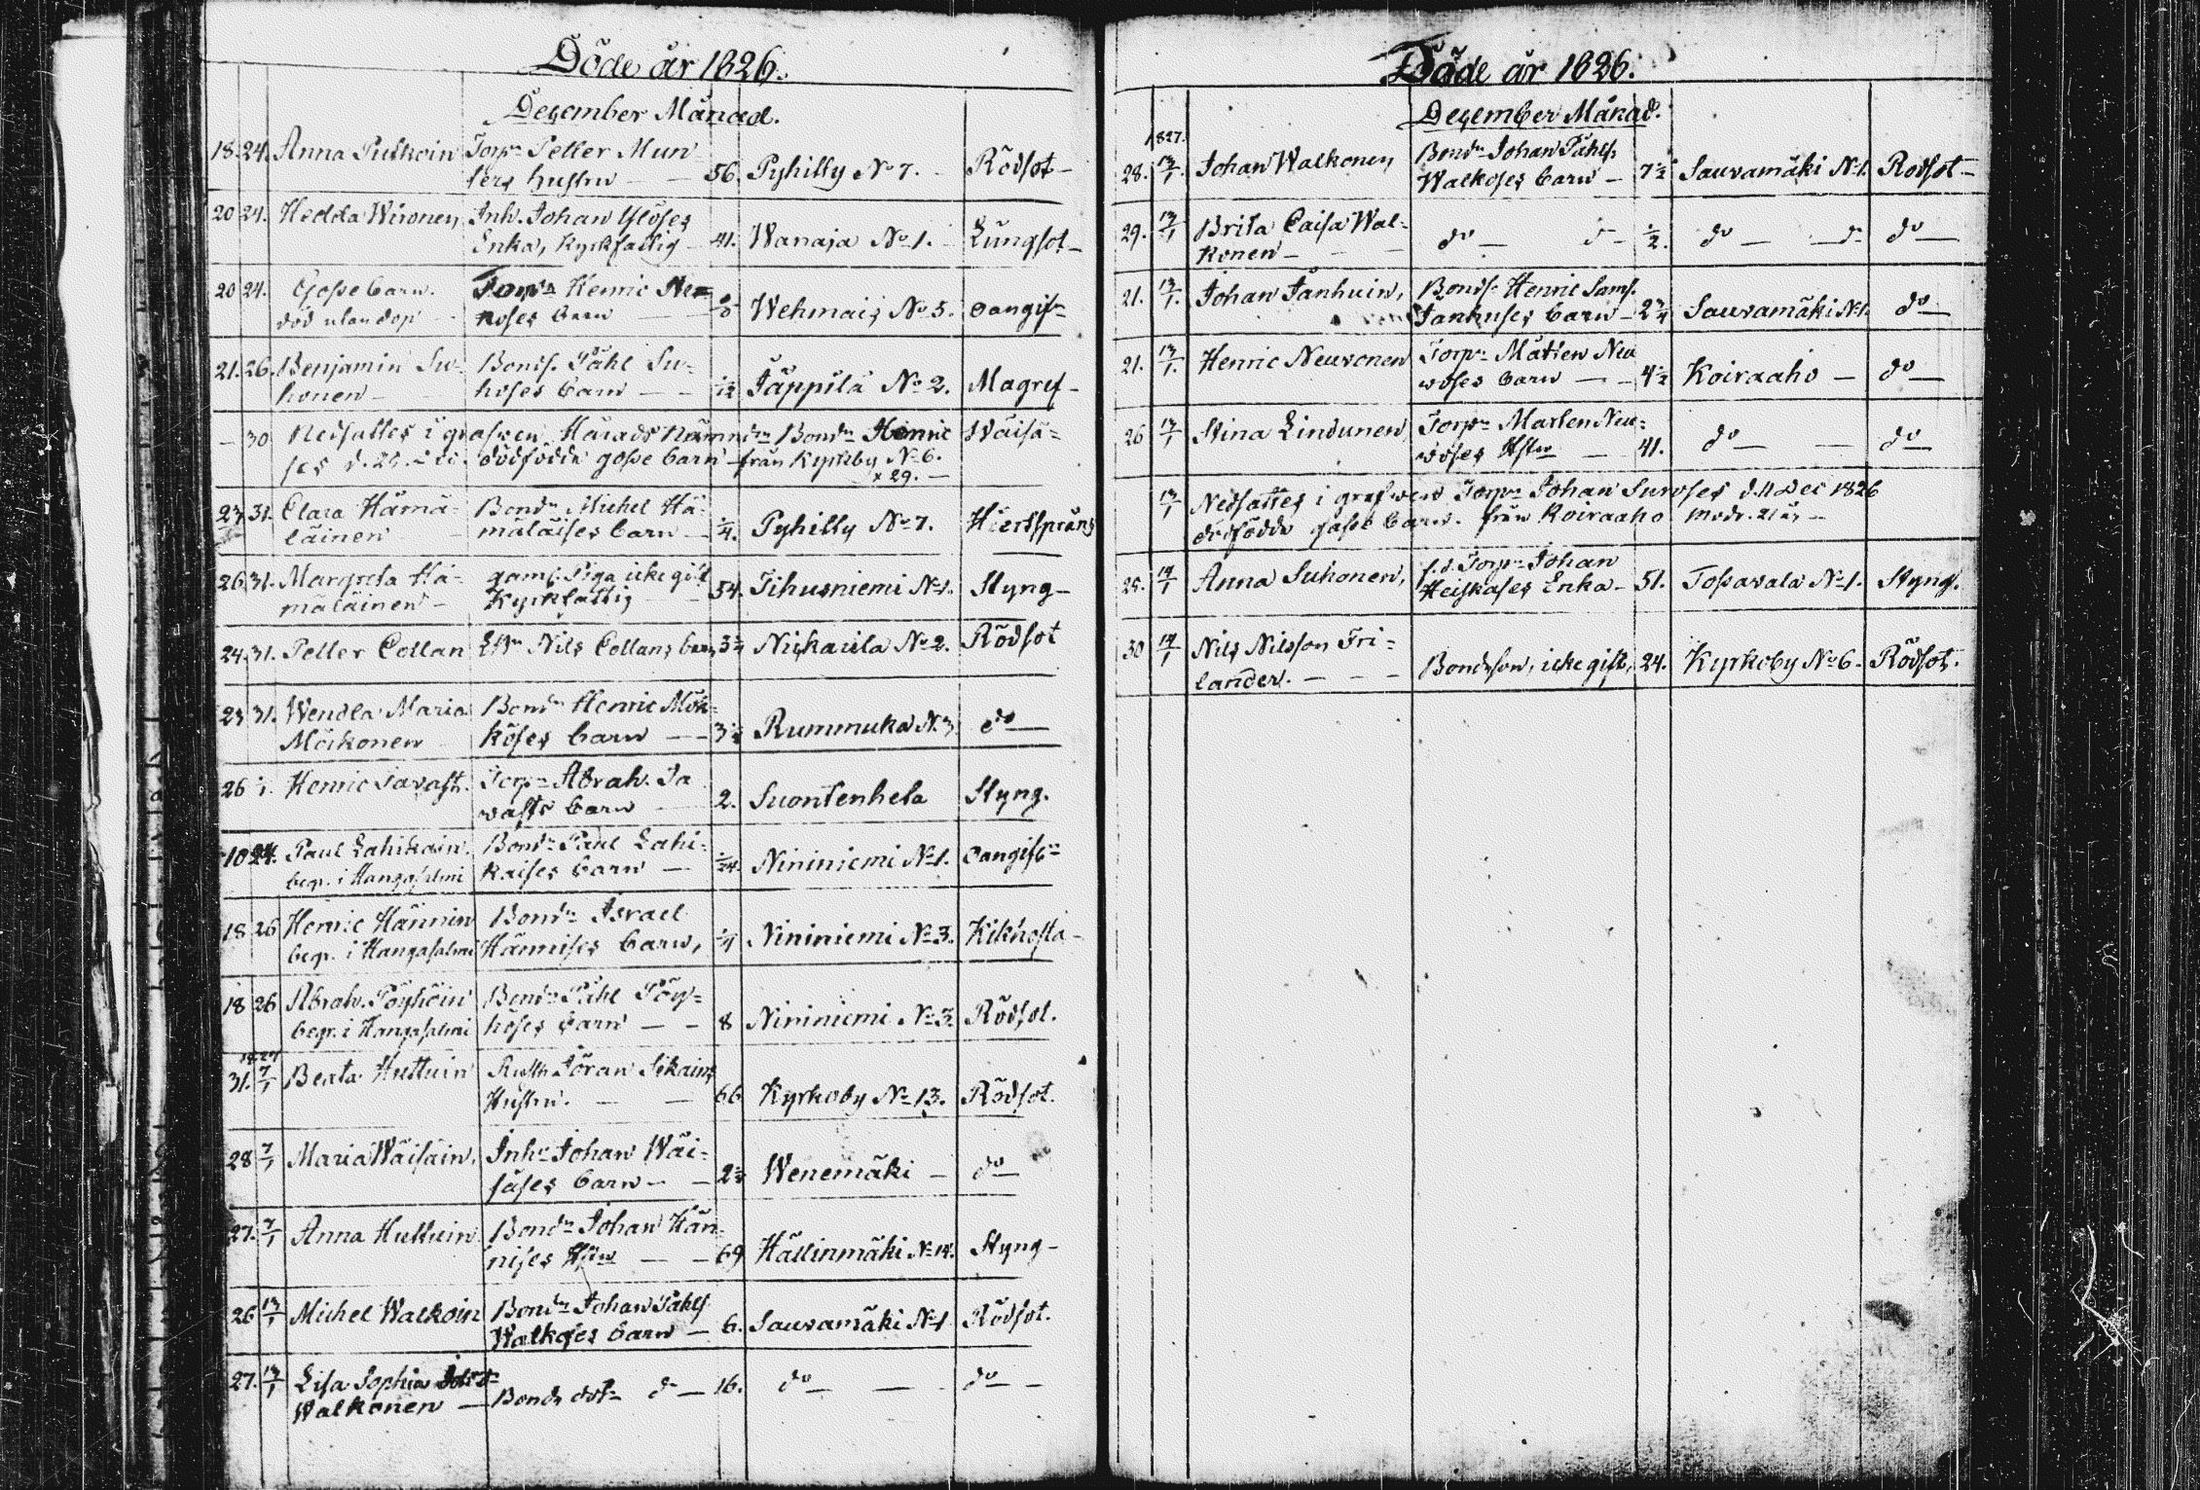 Döde år 1826.
December Månad.
18. 24. Anna Pulkoin Torpn Petter Mun
sers hustru — 56. Pyhilly No 7. Rödsot
20 24. Hedda Wironen, Inh. Johan
Enka, Kyrkfattig 41. Wanaja No 1. Lungsot
20 24. Gosse barn. Torpn Henric
död utan dop barn Wehmais No 5. oangif=
21. 26. Benjamin Su= Bonds. Påhl Su=
honen hoses barn 1/12 Jäppilä No 2. Magref
30 Nedsattes i grafwen Härads Nämndn Bondn Henric Wäisä=
ses dödfödda gosse barn från Kyrkby No 6.
29.
27 31. Clara Hämä= Bondn Michel Hä=
läinen mäläises barn 1/4. Pyhilly No 7. Hiertspräng
26 31. Margreta Hä= gaml. Piga icke gift
mäläinen Kyrkfattig 54. Tihusniemi No 1. Styng
24 31. Petter Collan Nils Collans barn 3 1/2 Niskaila No 2. Rödsot
23 31. Wendla Maria Bondn Henric Mön=
Mönkonen köses barn 3 1/2 Rummuka No 3 do
26 Henric Tavast. Torpn Abrah. Ta
vasts barn 2. Suontenhela Styng.
10 24. Paul Lahikain. Bondn Paul Lahi=
begr. i Hangasalmi kaises barn 1/24. Nininiemi No 1. oangifn
18 26 Henric Hännin Bondn Israel
begr. i Hangasalmi Hännises barn, Nininiemi No 3. Kikhosta
18 26 Abrah. Pöyhöin Bondn Påhl Pöy=
begr. i Hangasalmi höses barn 8 Nininiemi No 3. Rödsot.
1827
31. 7/1 Beata Huttuin Jöran
Hustru. 66 Kyrkoby No 13. Rödsot.
28 7/1 Maria Wäisäin. Inhr Johan Wäi=
säses barn 2 1/2 Wenemäki do
27. 7/1 Anna Huttuin Bondn Johan Hän=
nises Hstru 69 Hällinmäki No 14. Styng
26 13/1 Michel Walkoin Bondn Johan Påhls
Walkoses barn 6. Sauvamäki No 1 Rödsot.
27. 13/1 Lisa Sophia
Walkonen Bonds dotr d 16. do do
Döde år 1826.
December Månad.
1827.
28. 13/1 Johan Walkonen Bondn Johan Påhls
Walkoses barn 7 1/2 Sauvamäki No 1. Rödsot
29. 13/1 Brita Caisa Wal=
konen do d 1/2. do d do
21. 13/1 Johan Janhuin, Bonds. Henric Sams.
Janhuses barn 2 3/4 Sauvamäki No 1. do
21. 13/1 Henric Neuvonen Torpn Mårten Neu
voses barn 4 1/2 Koiraaho do
26 13/1 Stina Lindunen Torpn Marten Neu=
voses Hstru 41. do do
13/1 Nedsattes i grafwen Torpn Johan d. 11 Dec 1826
dödfödda gosse barn. från Koiraaho Modr. 21 år
25. 14/1 Anna Suhonen, f.d. Torpn Johan
Heiskases Enka 51. Tossavala No 1. Styng.
30 14/1 Nils Nilsson Fri=
lander. Bondeson, icke gift, 24. Kyrkoby No 6. Rödsot.